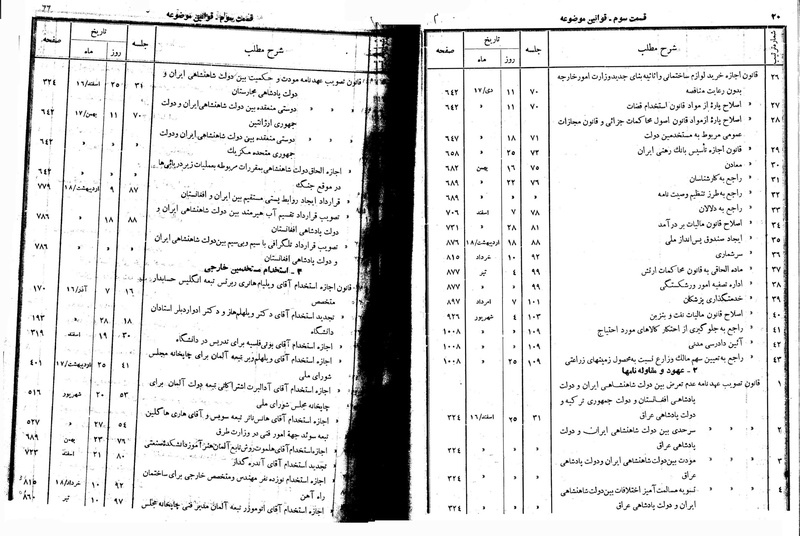 ۲۰
قسمت سوم - قوانین موضوعه
شماره ترتیب
شرح مطلب
جلسه
تاریخ
روز
ماه
صفحه
۲۶ قانون اجازه خرید لوازم ساختمانی و اثاثیه بنای جدید وزارت امور خارجه
بدون رعایت مناقصه ۷۰ ۱۱ دی/۱۷ ۶۴۲
۲۷ » اصلاح پارۀ از مواد قانون استخدام قضات ۷۰ ۱۱ » ۶۴۲
۲۸ » اصلاح پارۀ از مواد قانون اصول محاکمات جزائی و قانون مجازات
عمومی مربوط به مستخدمین دولت ۷۱ ۱۸ » ۶۴۷
۲۹ » قانون اجازه تأسیس بانک رهنی ایران ۷۳ ۲۵ » ۶۵۸
۳۰ » معادن ۷۵ ۱۶ بهمن ۶۸۲
۳۱ » راجع به کارشناسان ۷۶ ۲۲ » ۶۸۹
۳۲ » راجع به طرز تنظیم وصیت نامه » » » ۶۸۹
۳۳ » راجع به دلالان ۷۸ ۷ اسفند ۷۰۶
۳۴ » اصلاح قانون مالیات بر درآمد ۸۱ ۲۸ » ۷۳۱
۳۵ » ایجاد صندوق پس‌انداز ملی ۸۸ ۱۸ اردیبهشت/۱۸ ۸۷۶
۳۶ » سرشماری ۹۲ ۱۰ خرداد ۸۱۵
۳۷ » ماده الحاقی به قانون محاکمات ارتش ۹۹ ۴ تیر ۸۷۷
۳۸ » اداره تصفیه امور ورشکستگی » » » ۸۷۷
۳۹ » خدمتگذاری پزشکان ۱۰۱ ۷ امرداد ۸۹۷
۴۰ » اصلاح قانون مالیات نفت و بنزین ۱۰۳ ۴ شهریور ۹۲۶
۴۱ » راجع به جلوگیری از احتکار کالاهای مورد احتیاج ۱۰۹ » » ۱۰۰۸
۴۲ » آئین دادرسی مدنی ۱۰۹ » » ۱۰۰۸
۴۳ » راجع به تعیین سهم مالک و زارع نسبت به محصول زمینهای زراعتی ۱۰۹ ۲۵ » ۱۰۰۸
۲ - عهود و مقاوله نامها
۱ قانون تصویب عهدنامه عدم تعرض بین دولت شاهنشاهی ایران و دولت
پادشاهی افغانستان و دولت جمهوری ترکیه و
دولت پادشاهی عراق ۳۱ ۲۵ اسفند/۱۶ ۳۲۴
۲ » » » سرحدی بین دولت شاهنشاهی ایران و دولت
پادشاهی عراق » » » ۳۲۴
۳ » » » مودت بین دولت شاهنشاهی ایران و دولت پادشاهی
عراق » » » ۳۲۴
۴ » » » تسویه مسالمت آمیز اختلافات بین دولت شاهنشاهی
ایران و دولت پادشاهی عراق » » » ۳۲۴
قسمت سوم - قوانین موضوعه
شرح مطلب
جلسه
تاریخ
روز
ماه
صفحه
قانون تصویب عهدنامه مودت و حکمیت بین دولت شاهنشاهی ایران و
دولت پادشاهی مجارستان ۳۱ ۲۵ اسفند/۱۶ ۳۲۴
» » » دوستی منعقده بین دولت شاهنشاهی ایران و دولت
جمهوری آرژانتین ۷۰ ۱۱ بهمن/۱۷ ۶۴۲
» » » دوستی منعقده بین دولت شاهنشاهی ایران و دولت
جمهوری متحده مکزیک » » » ۶۴۲
» اجازه الحاق دولت شاهنشاهی به مقررات مربوطه به عملیات زیردریائی‌ها
در موقع جنگ » » » ۶۴۲
» قرارداد ایجاد روابط پستی مستقیم بین ایران و افغانستان ۸۷ ۹ اردیبهشت/۱۸ ۷۷۹
» تصویب قرارداد تقسیم آب هیرمند بین دولت شاهنشاهی ایران و
دولت پادشاهی افغانستان ۸۸ ۱۸ » ۷۸۶
» تصویب قرارداد تلگرافی با سیم و بی‌سیم بین دولت شاهنشاهی ایران
و دولت پادشاهی افغانستان » » » ۷۸۶
۳ - استخدام مستخدمین خارجی
قانون اجازه استخدام آقای ویلیام هانری ریرتس تبعه انگلیس حسابدار
متخصص ۱۶ ۷ آذر/۱۶ ۱۷۰
» تجدید استخدام آقای دکتر ویلهلم هاز و دکتر ادوارد بلر استادان
دانشگاه ۱۸ ۲۸ » ۱۹۳
» اجازه استخدام آقای بونی‌فلسیه برای تدریس در دانشگاه ۳۰ ۱۹ اسفند ۳۱۹
» اجازه استخدام آقای ویلهلم ویر تبعه آلمان برای چاپخانه مجلس
شورای ملی ۴۱ ۲۵ اردیبهشت/۱۷ ۴۰۱
» اجازه استخدام آقای آدالبرت اشتراکائی تبعه دولت آلمان برای
چاپخانه مجلس شورای ملی ۵۳ ۲۰ شهریور ۵۱۶
» اجازه استخدام آقای هانس ناتر تبعه سویس و آقای هاری هاگلین
تبعه سوئد جهة امور فنی در وزارت طرق ۵۴ ۲۷ » ۵۲۷
» اجازه استخدام آقای هلموت روش تابع آلمان هنرآموز دانشکده صنعتی ۷۶ ۲۳ بهمن ۶۸۹
» تجدید استخدام آقای آندره گدار ۸۰ ۲۱ اسفند ۷۲۳
» اجازه استخدام نوزده نفر مهندس و متخصص خارجی برای ساختمان
راه آهن ۹۲ ۱۰ خرداد/۱۸ ۸۱۵
» اجازه استخدام آقای اتوموزر تبعه آلمان مدیر فنی چاپخانه مجلس ۹۷ ۱۰ تیر ۸۶۰